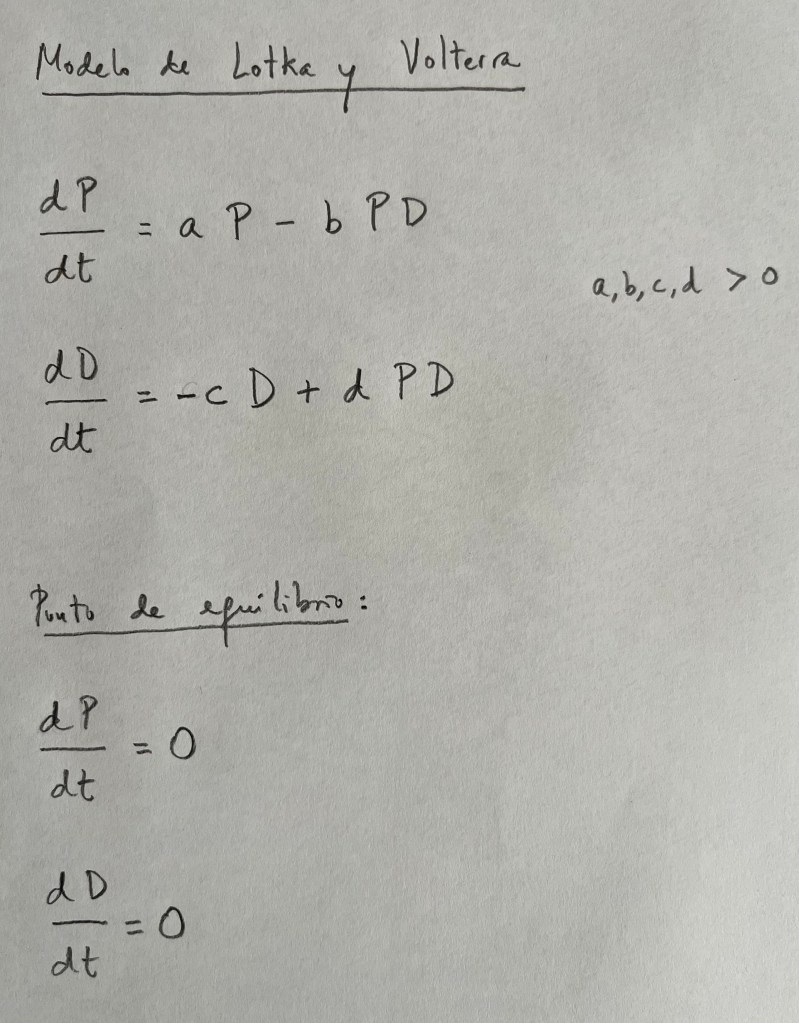 Modelo de Lotka y Volterra
dP/dt = a P - b P D
a,b,c,d > 0
dD/dt = -c D + d P D
Punto de equilibrio:
dP/dt = 0
dD/dt = 0